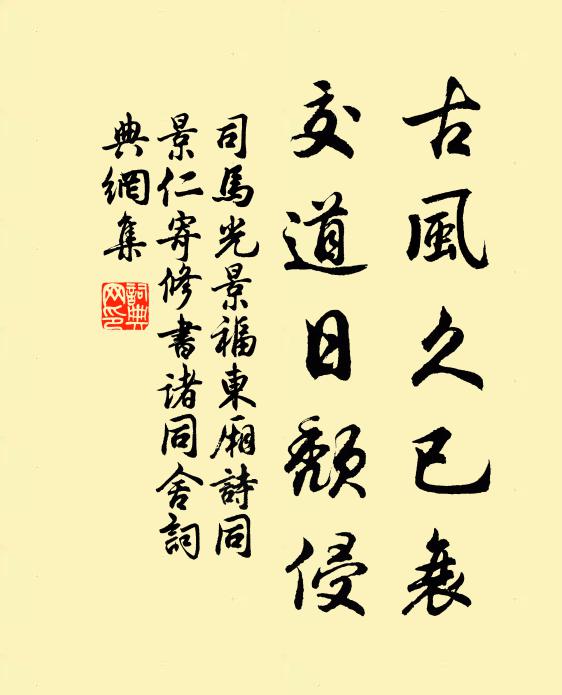 古風久已衰
交道日頽侵
司馬光景福東廂詩同
景仁寄修書诸同舍詞
典網集
詞典
网印